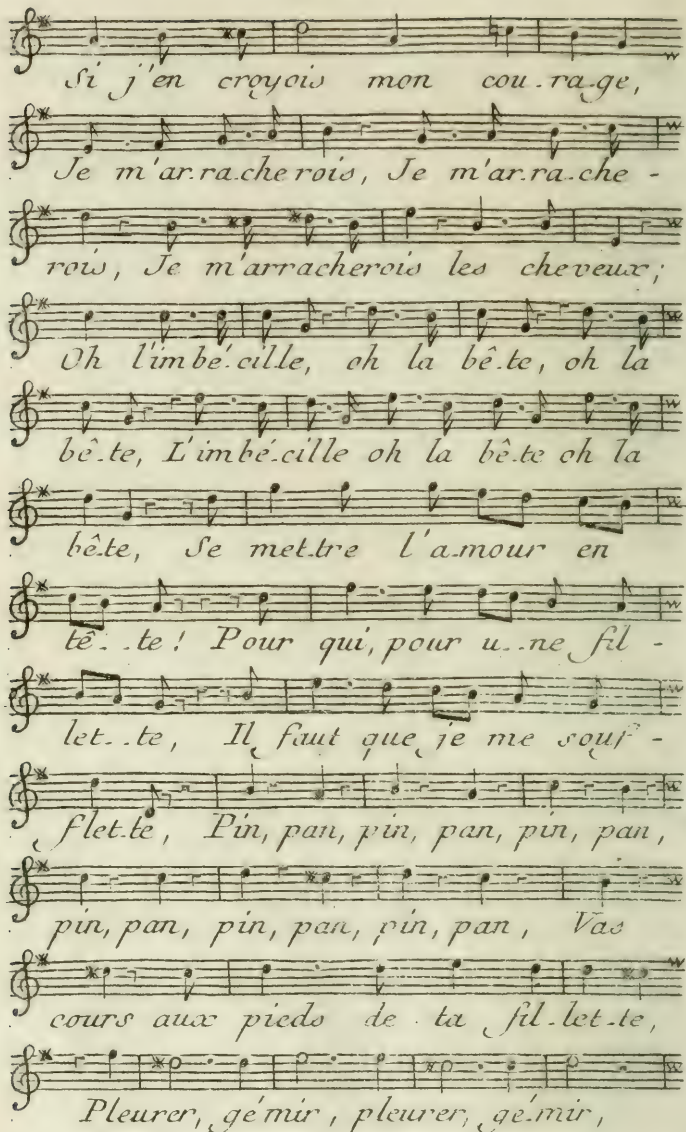 Si j'en croyois mon cou-ra-ge,
Je m'ar-ra-cherois, Je m'ar-ra-che-
rois, Je m'arracherois les cheveux;
Oh l'imbé-cille, oh la bê-te, oh la
bê-te, L'imbé-cille oh la bê-te oh la
bête, Se met-tre l'a-mour en
tê--te! Pour qui, pour u--ne fil-
let--te, Il faut que je me souf-
flet-te, Pin, pan, pin, pan, pin, pan,
pin, pan, pin, pan, pin, pan, Vas
cours aux pieds de ta fil-let-te,
Pleurer, gé-mir, pleurer, gé-mir,